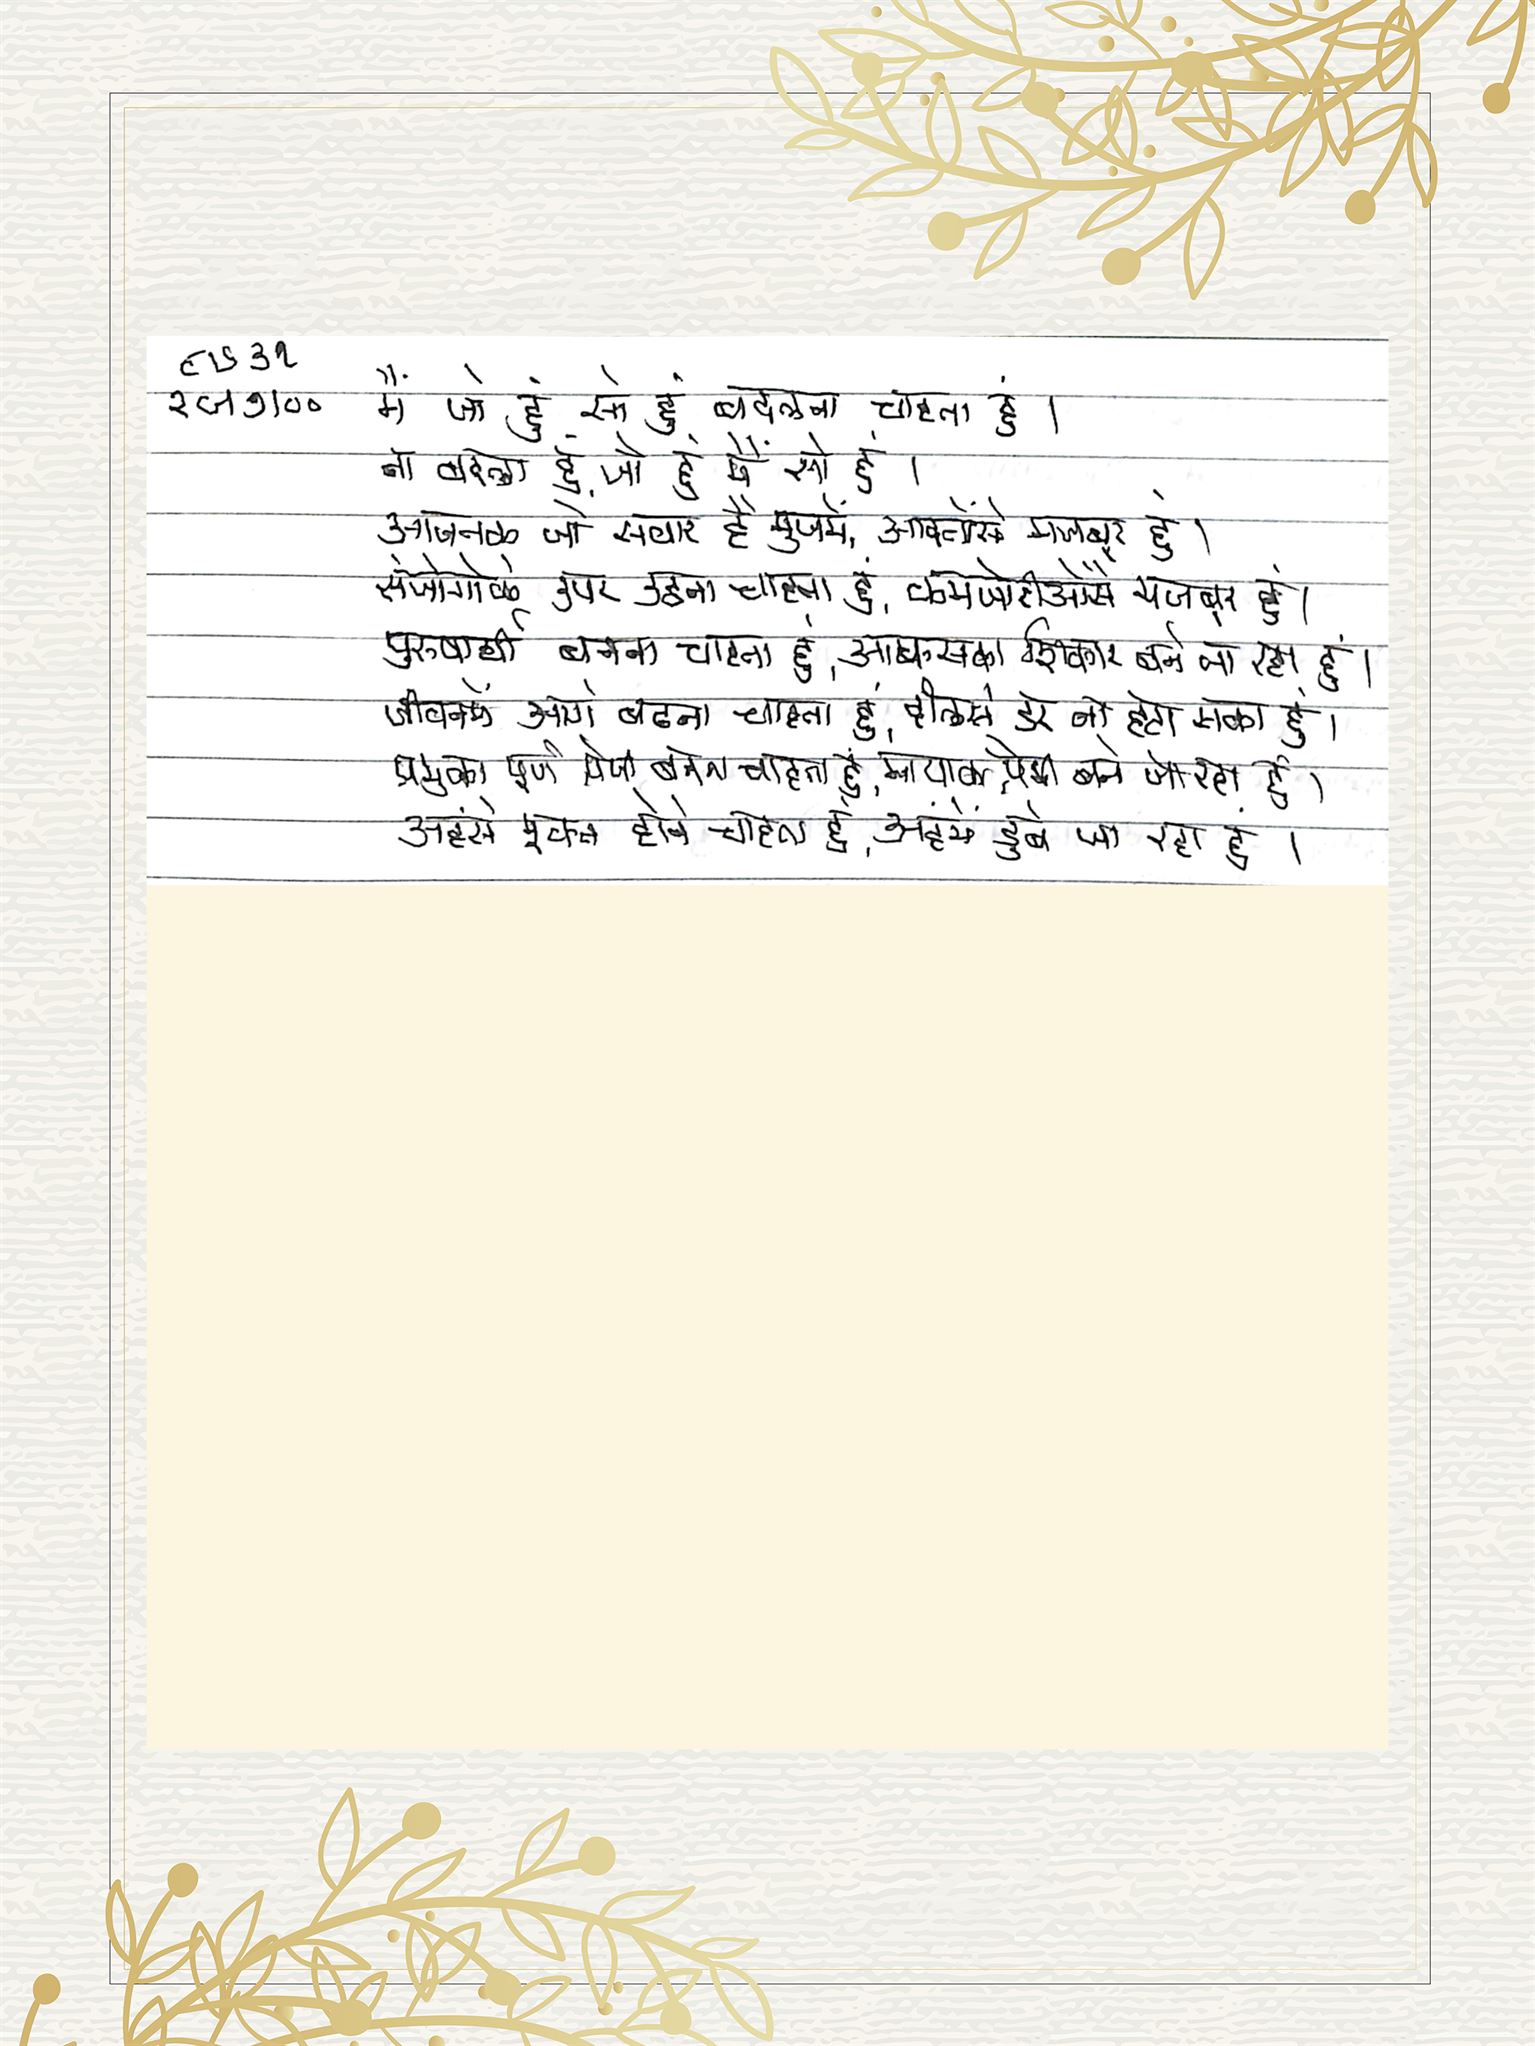 मैं जो हुं सो हुं बदलना चाहता हुं ।
ना बदला हुं, जो हुं मैं सो हुं ।
आजतक जो सवार है मुजमें, आदतोंसे मजबूर हुं ।
संजोगोके उपर उठना चाहता हुं, कमजोरीओसे मजबूर हुं ।
पुरुषार्थी बनना चाहता हुं, आळसका शिकार बने जा रहा हुं ।
जीवनमें आगे बढना चाहता हुं, दीलसे डर ना हटा सका हुं ।
प्रभुका पूर्ण प्रेमी बनना चाहता हुं, मायाका प्रेमी बने जा रहा हुं ।
अहंसे मुक्त होने चाहता हुं, अहंमें डुबे जा रहा हुं ।